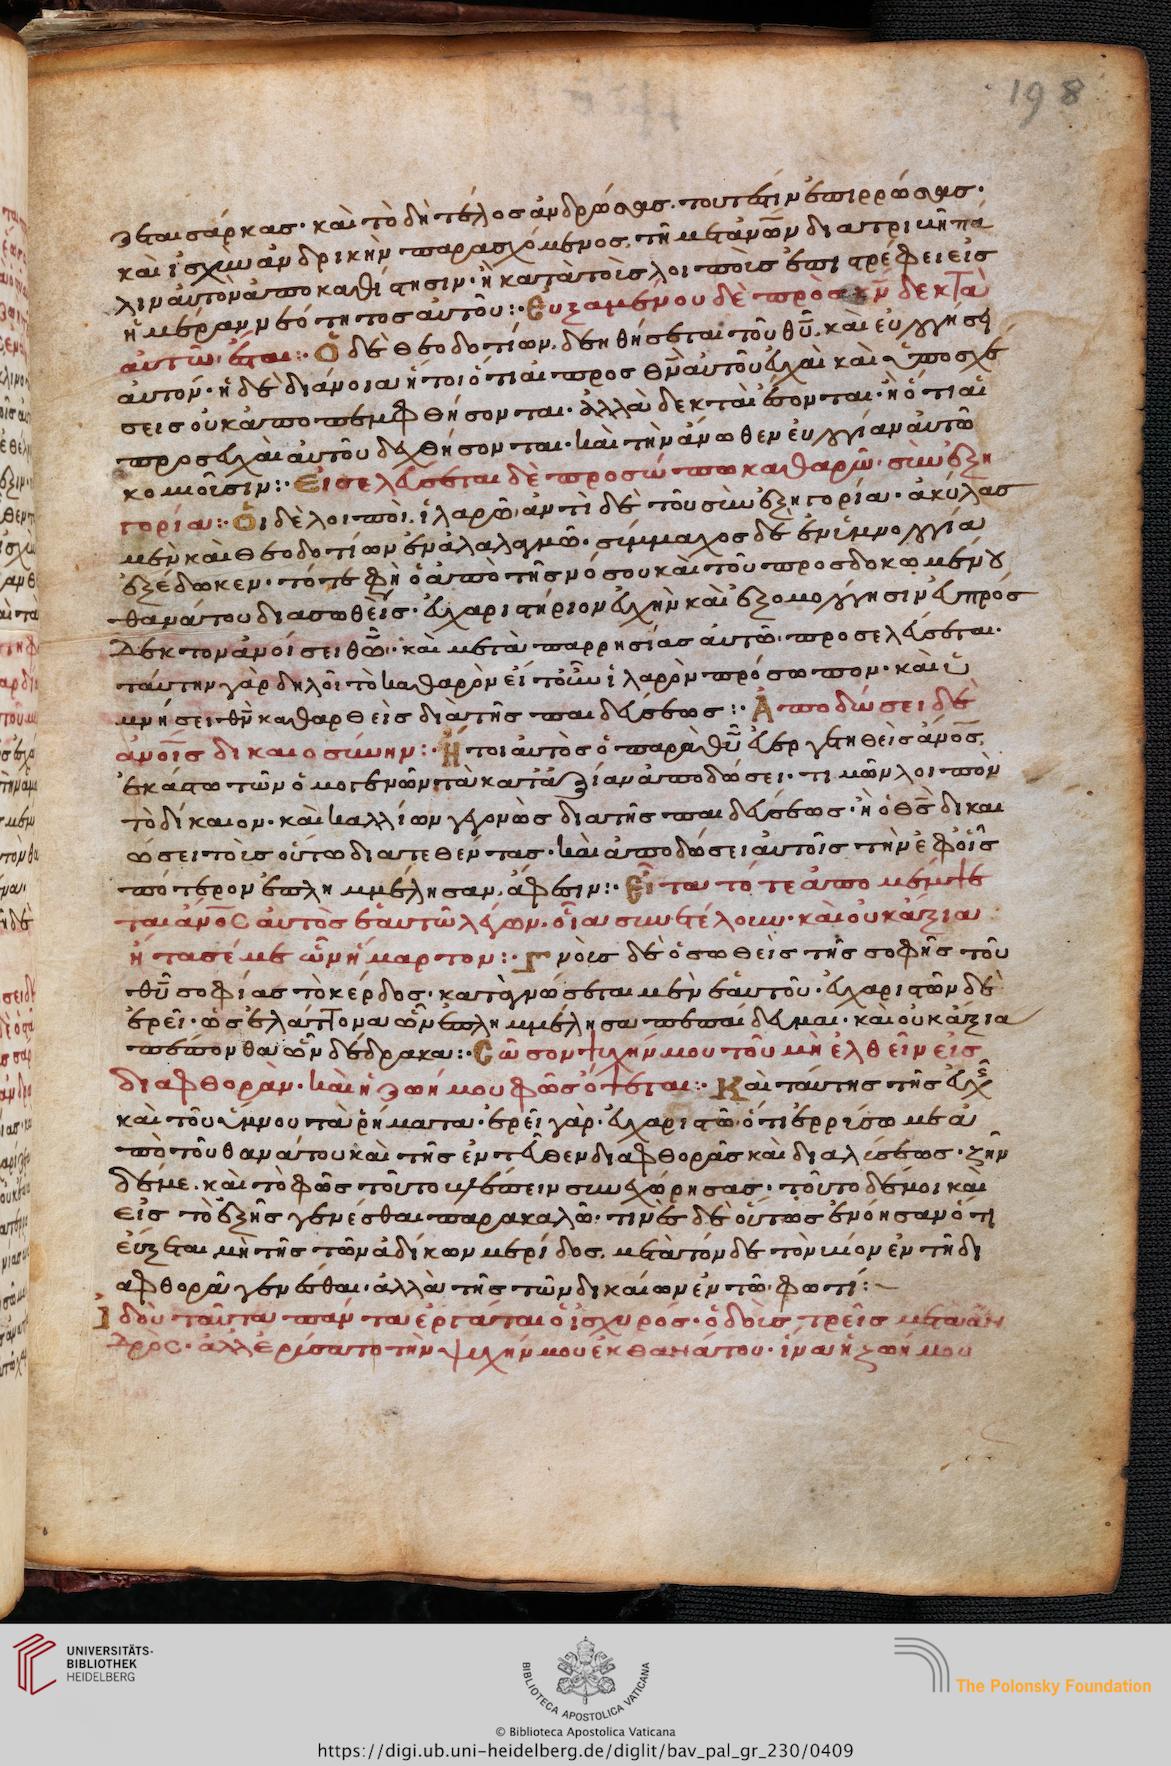 198
ζεται σάρκας· καὶ τὸ δὴ τέλος ἀνδρώσας. τουτέστιν ἐπιρρώσας·
καὶ ἰσχὺν ἀνδρικὴν παρασχόμενος, τῇ μετ ἀνῶν διατριβῇ πά
λιν αὐτὸν ἀποκαθίστησιν· ἢ κατὰ τοὺς λοιποὺς ἐπιστρέφει εἰς
ἡμέραν νεότητος αὐτοῦ:· Ευξαμένου δὲ πρὸς κν δεκτὰ
αὐτῶ ἔσται:· Ὁ δὲ Θεοδοτίων. δεηθήσεται τοῦ θυ. καὶ εὐλογήσει
αὐτόν· ἡ δὲ διάνοια ἤτοι ὅτι αἱ προς θν αὐτοῦ εὐχαὶ καὶ ὑποσχέ
σεις οὐκ ἀποπεμφθήσονται· ἀλλὰ δεκταὶ ἔσονται· ἢ ὅτι αἱ
προσευχαὶ αὐτοῦ δεχθήσονται· καὶ τὴν ἄνωθεν εὐλογίαν αὐτῶ
κομιοῦσιν:· Εἰσελεύσεται δὲ προσώπω καθαρῶ· σὺν ἐξη
γορία:· Οἱ δὲ λοιποὶ, ἱλαρῶ, ἀντὶ δὲ τοῦ σὺν ἐξηγορία· ἀκύλας
μὲν καὶ Θεοδοτίων ἐν ἀλαλαγμῶ· σύμμαχος δὲ ἐν ὑμνολογία
ἐξέδωκεν· τότε φη ὁ ἀπὸ τῆς νόσου καὶ τοῦ προσδοκωμένου
θανάτου διασωθεὶς· εὐχαριστήριον εὐχὴν καὶ ἐξομολόγησιν εὐπρόσ
δεκτον ἀνοίσει θῶ· καὶ μετὰ παρρησίας αὐτῶ προσελεύσεται·
ταύτην γὰρ δηλοῖ τὸ καθαρὸν εἴτουν ἱλαρὸν πρόσωπον· καὶ ὑ
μνήσει θν καθαρθεὶς διὰ τῆς παιδεύσεως:· Ἀποδώσει δὲ
ἀνοις δικαιοσύνην:· Ἤτοι αὐτὸς ὁ παρὰ θυ εὐεργετηθεὶς ἀνος,
ἑκάστω τῶν ὁμογενῶν τὰ κατἀξίαν ἀποδώσει· τιμῶν λοιπὸν
τὸ δίκαιον· καὶ καλλίων γεγονὼς δια τῆς παιδεύσεως· ἢ ὁ θς δικαι
ώσει τοὺς οὕτω διατεθέντας· καὶ ἀποδώσει αὐτοῖς τὴν ἐφ οἷς
πότερον ἐπλημμέλησαν, ἄφεσιν:· Εἶτα τότε ἀπομέμψε
ται ἀνος αὐτὸς ἑαυτῶ λέγων. οἷα συνετέλουν· καὶ οὐκ ἄξια
ἤτασέ με ὧν ἥμαρτον:· Γνοὺς δὲ ὁ σωθεὶς τῆς σοφῆς τοῦ
θυ σοφίας τὸ κέρδος· καταγνώσεται μὲν ἑαυτοῦ· εὐχαριστῶν δὲ
ἐρεῖ· ὡς ἐλάττονα ὧν ἐπλημμέλησα πεπαίδευμαι· καὶ οὐκ ἄξια
πέπονθα ὧν δέδρακα:· Σῶσον ψυχήν μου τοῦ μὴ ἐλθεῖν εἰς
διαφθοράν· καὶ ἡ ζωή μου φῶς ὄψεται:· Καὶ ταύτης τῆς εὐχῆς
καὶ τοῦ ὕμνου τὰ ῥήματα· ἐρεῖ γὰρ· εὐχαριστῶ ὅτι ἐρρύσω με ἀ
πὸ τοῦ θανάτου καὶ τῆς ἐντεῦθεν διαφθορᾶς καὶ διαλύσεως· ζῆν
δέ με· καὶ τὸ φῶς τοῦτο βλέπειν συνεχώρησας· τοῦτο δέ μοι καὶ
εἰς τὸ ἑξῆς γενέσθαι παρακαλῶ· τινὲς δὲ οὕτως ἐνόησαν ὅτι
εὔξεται μὴ τῆς τῶν ἀδίκων μερίδος, μετὰ τόνδε τὸν βίον ἐν τῇ δι
αφθορᾶ γενέσθαι· ἀλλὰ τῆς τῶν δικαίων ἐν τῶ φωτί:~
Ἰδοὺ ταῦτα πάντα ἐργᾶται ὁ ἰσχυρός· ὁδοὺς τρεῖς μετὰ ἀν
δρὸς· ἀλλ ἐρύσατο τὴν ψυχήν μου ἐκ θανάτου· ἵνα ἡ ζωή μου
UNIVERSITÄTS-
BIBLIOTHEK
HEIDELBERG
BIBLIOTECA APOSTOLICA VATICANA
The Polonsky Foundation
© Biblioteca Apostolica Vaticana
https://digi.ub.uni-heidelberg.de/diglit/bav_pal_gr_230/0409